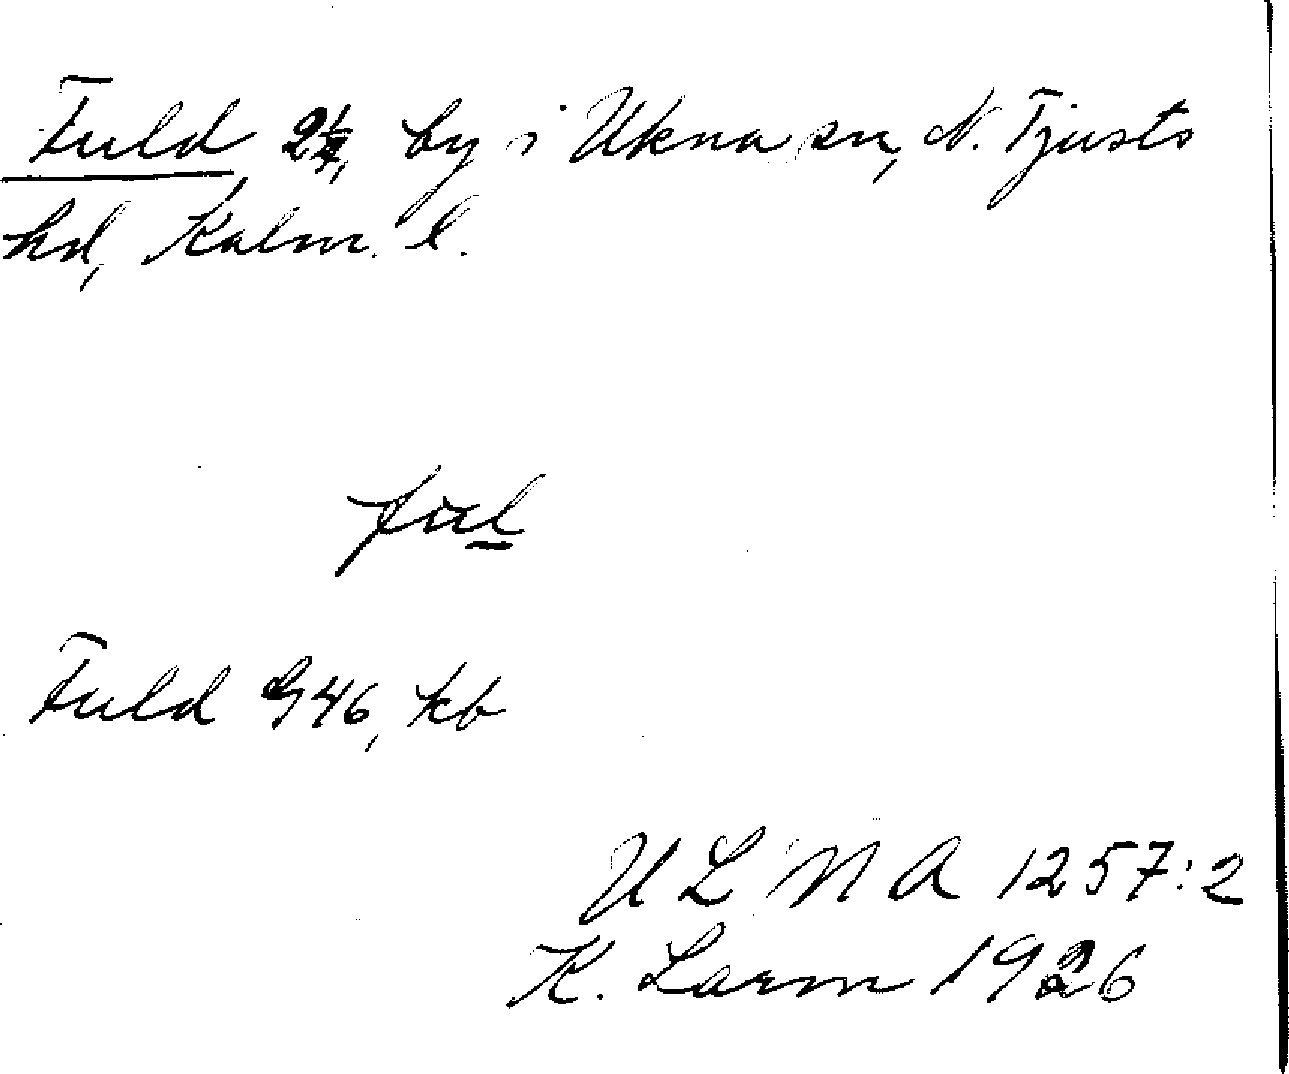 Fuld 2¼, by i Ukna sn, N. Tjusts
hd, Kalm. l.
ful
Fuld G46, kb
ULMA 1257:2
K. Larm 1926